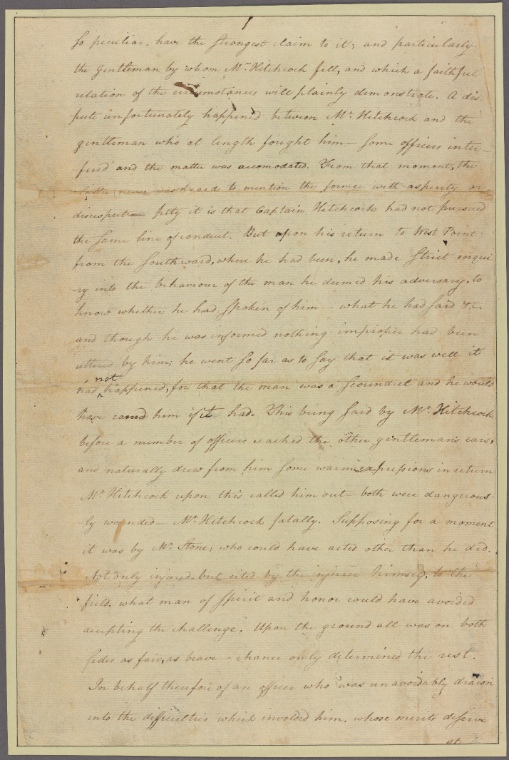 so peculiar, have the strongest claim to it; and particularly
the gentleman by whom Mr. Hitchcock fell, and which a faithful
relation of the circumstances will plainly demonstrate. A dis
pute unfortunately happened between Mr. Hitchcock and the
gentleman who at length fought him — some officers inter
fered and the matter was accomodated. From that moment, the
latter never was heard to mention the former with asperity or
disrespect pitty it is that Captain Hitchcock had not pursued
the same line of conduct. But upon his return to West Point
from the Southward, where he had been, he made strict inqui
ry into the behaviour of the man he deemed his adversary, to
know whether he had spoken of him — what he had said &c.
and though he was informed nothing improper had been
uttered by him; he went so far as to say that it was well it
had not happened, for that the man was a scoundrel and he would
have caned him if it had. This being said by Mr. Hitchcock
before a number of officers reached the other gentleman's ears,
and naturally drew from him some warm expressions in return
Mr. Hitchcock upon this called him out — both were dangerous
ly wounded — Mr. Hitchcock fatally. Supposing for a moment
it was by Mr. Stone, who could have acted other than he did.
Not only injured but cited by the injurer himself, to the
field, what man of spirit and honor could have avoided
accepting the challenge. Upon the ground all was on both
sides as fair, as brave — chance only determined the rest.
In behalf therefore of an officer who was unavoidably drawn
into the difficulties which involved him, whose merits deserve